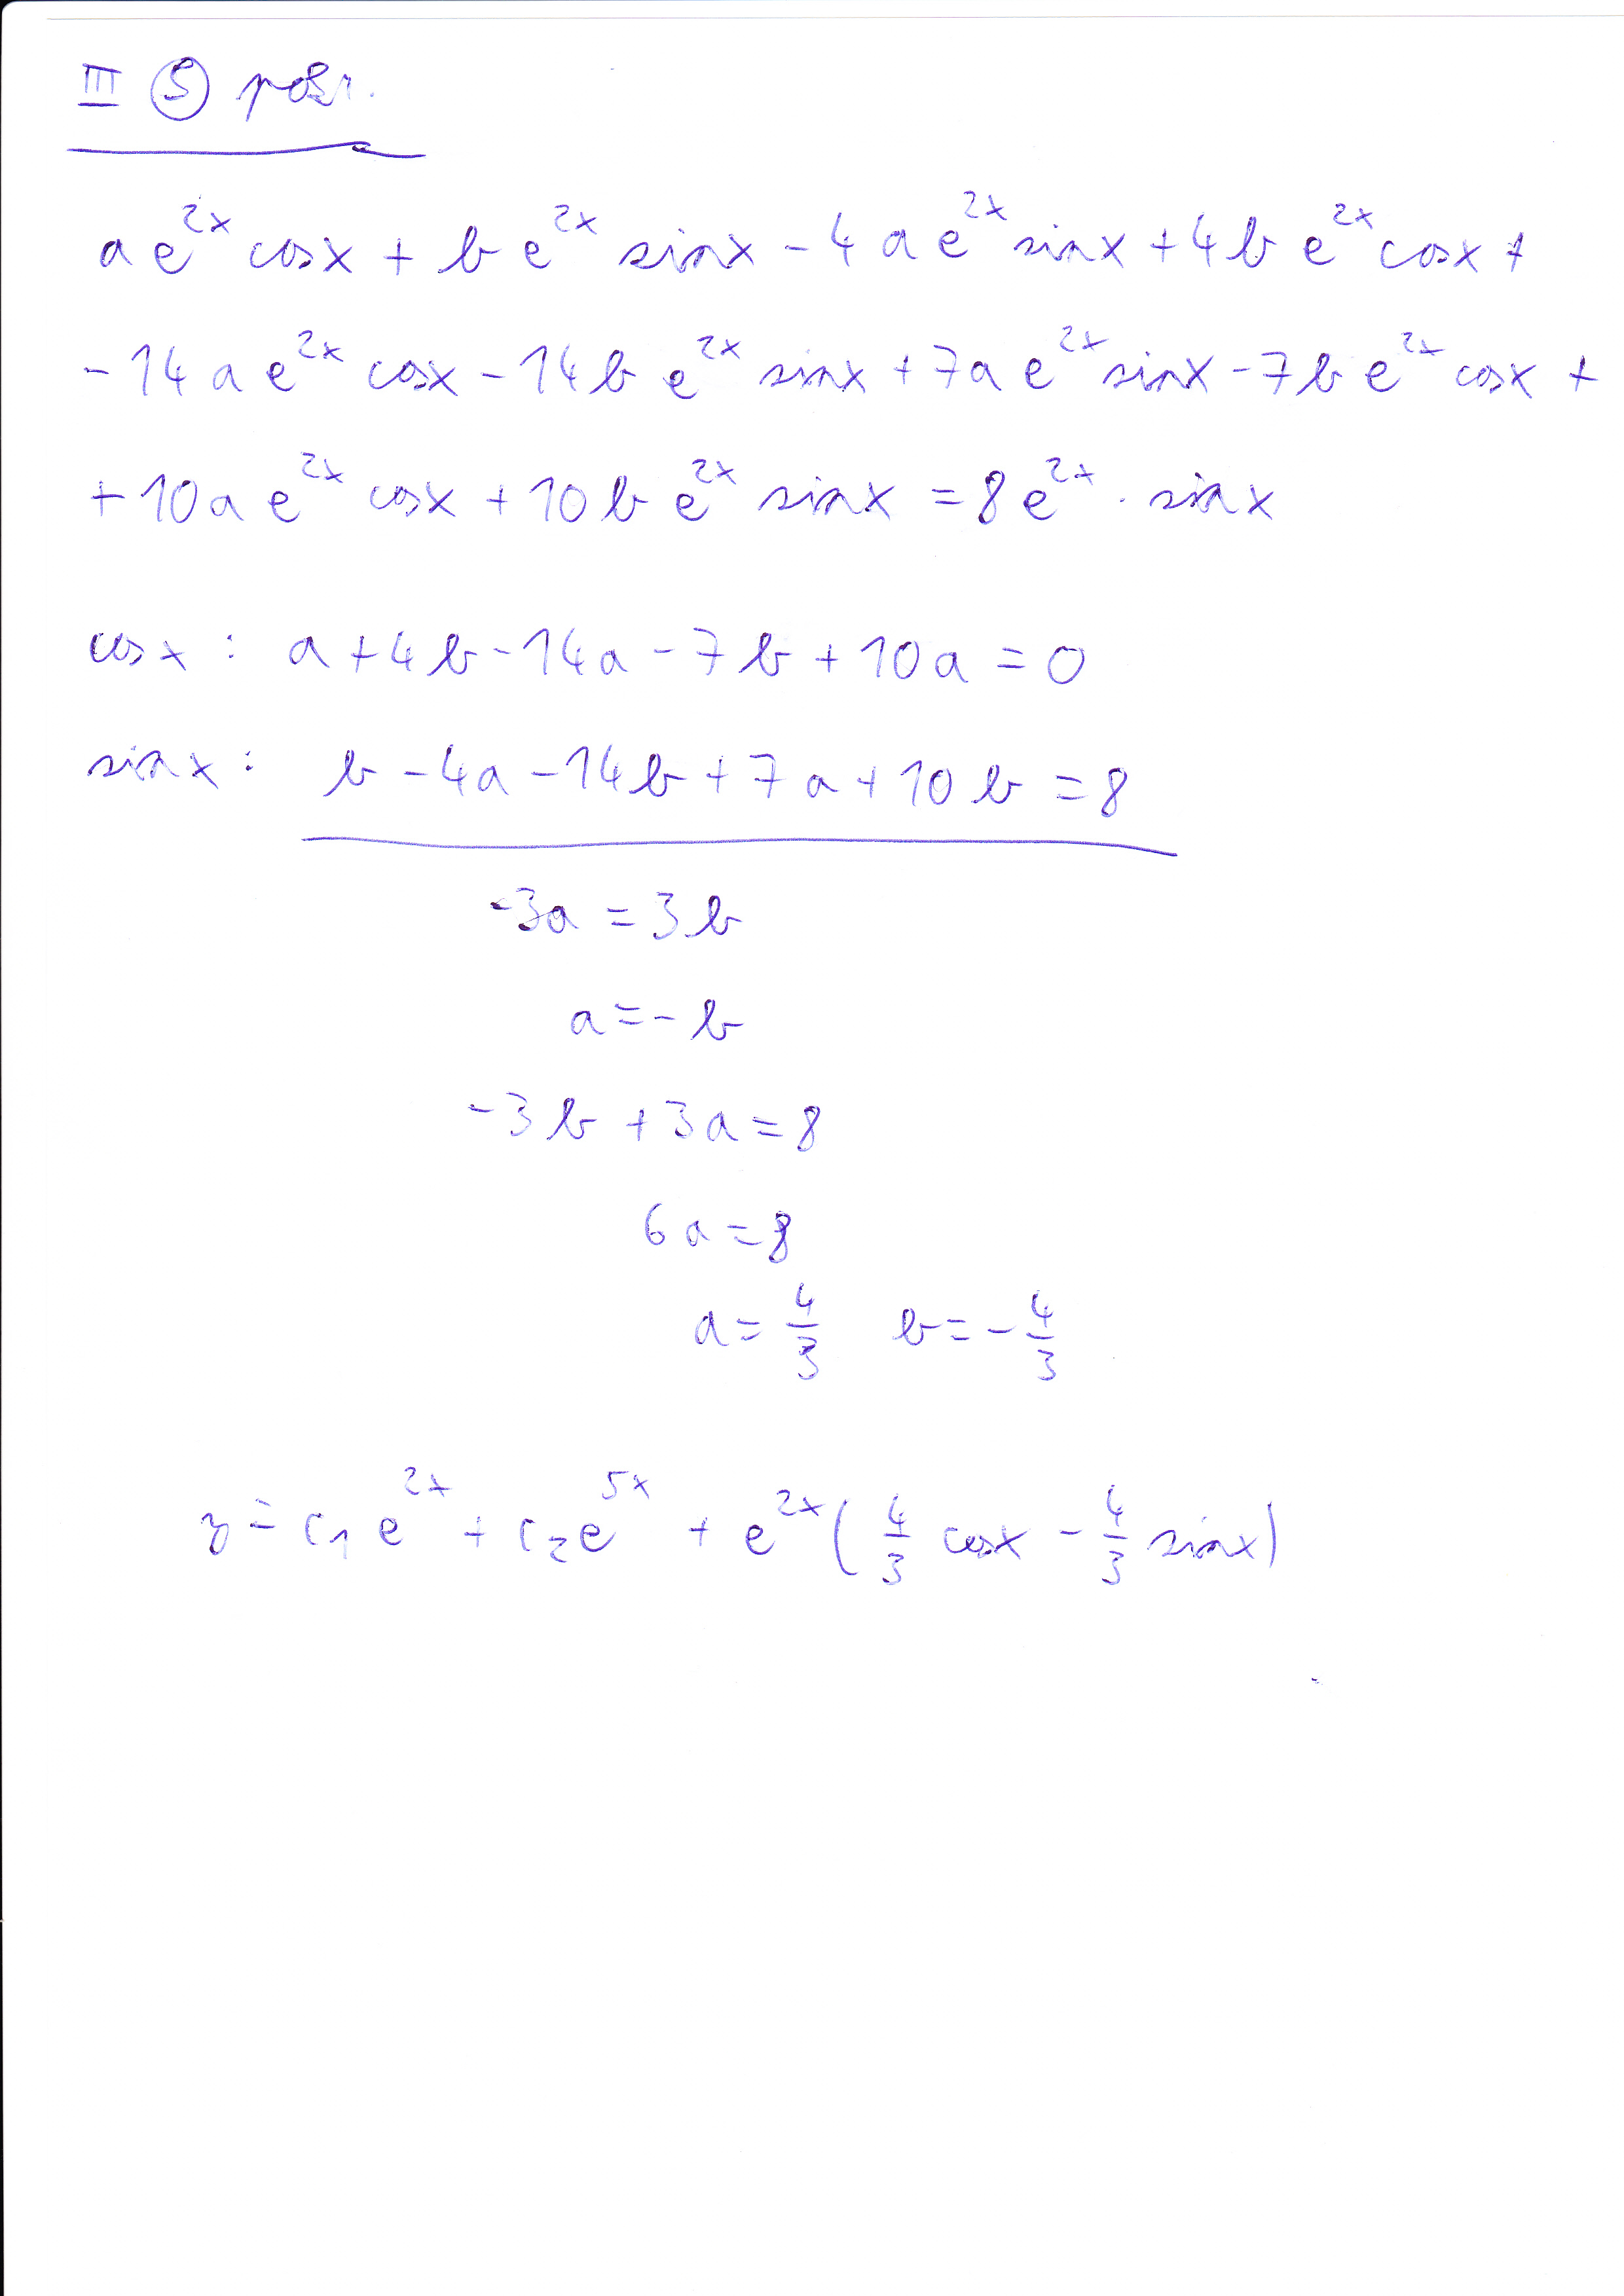 III ⑤
a e^{2x} cosx + b e^{2x} sinx - 4 a e^{2x} sinx + 4 b e^{2x} cosx +
- 14 a e^{2x} cosx - 14 b e^{2x} sinx + 7a e^{2x} sinx - 7 b e^{2x} cosx +
+ 10 a e^{2x} cosx + 10 b e^{2x} sinx = 8 e^{2x} · sinx
cosx : a + 4 b - 14a - 7 b + 10 a = 0
sinx : b - 4a - 14b + 7 a + 10 b = 8
-3a = 3 b
a = - b
-3 b + 3a = 8
6 a = 8
a = \frac{4}{3} b = - \frac{4}{3}
y = c_1 e^{2x} + c_2 e^{5x} + e^{2x} ( \frac{4}{3} cosx - \frac{4}{3} sinx )